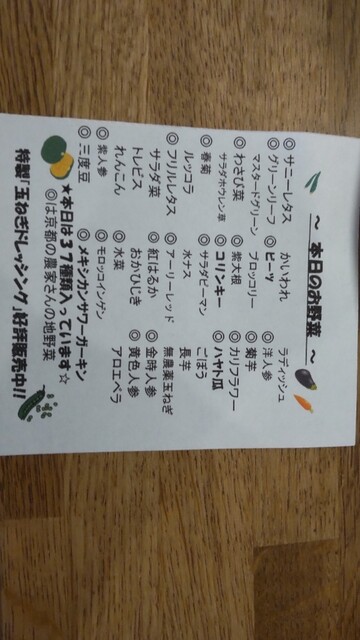 ～ 本日のお野菜 ～
◎サニーレタス かいわれ ラディッシュ
◎グリーンリーフ ◎ビーツ ◎洋人参
マスタードグリーン ブロッコリー ◎菊芋
◎わさび菜 ◎紫大根 ◎カリフラワー
サラダホウレン草 ◎コリンキー ◎ハヤト瓜
◎春菊 ◎サラダピーマン ごぼう
ルッコラ 水ナス 長芋
◎フリルレタス ◎アーリーレッド 無農薬玉ねぎ
サラダ菜 ◎紅はるか ◎金時人参
トレビス おかひじき ◎黄色人参
れんこん ◎水菜 アロエベラ
◎紫人参 ◎モロッコインゲン
◎三度豆 ◎メキシカンサワーガーキン
★本日は３７種類入っています☆
◎は京都の農家さんの地野菜
特製「玉ねぎドレッシング」好評販売中!!